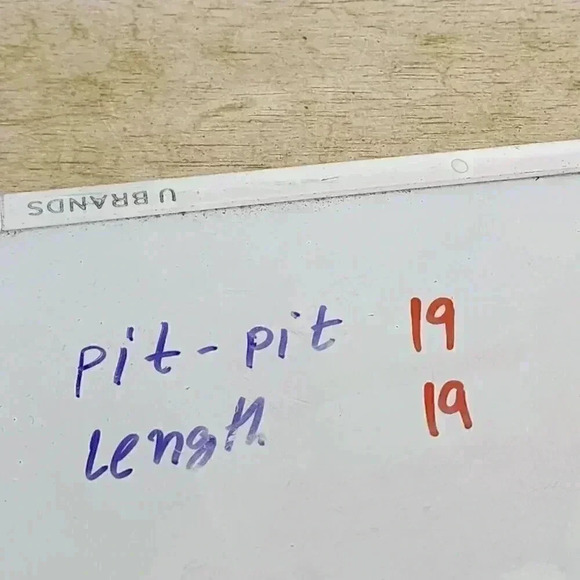 U BRANDS
pit-pit 19
Length 19